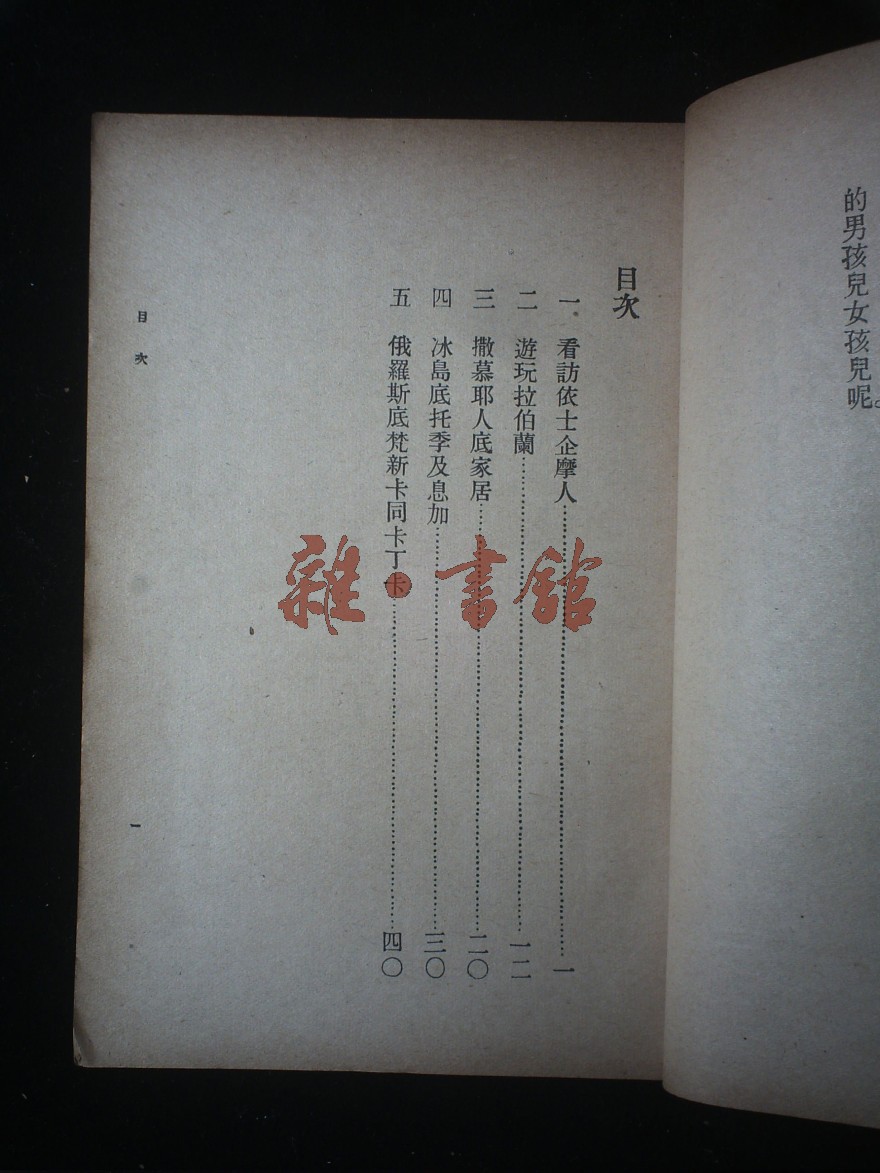 的男孩兒女孩兒呢。
目次
一 看訪依士企摩人……一
二 遊玩拉伯蘭……一二
三 撒慕耶人底家居……二〇
四 冰島底托季及息加……三〇
五 俄羅斯底梵新卡同卡丁卡……四〇
目次
一
雜·書館